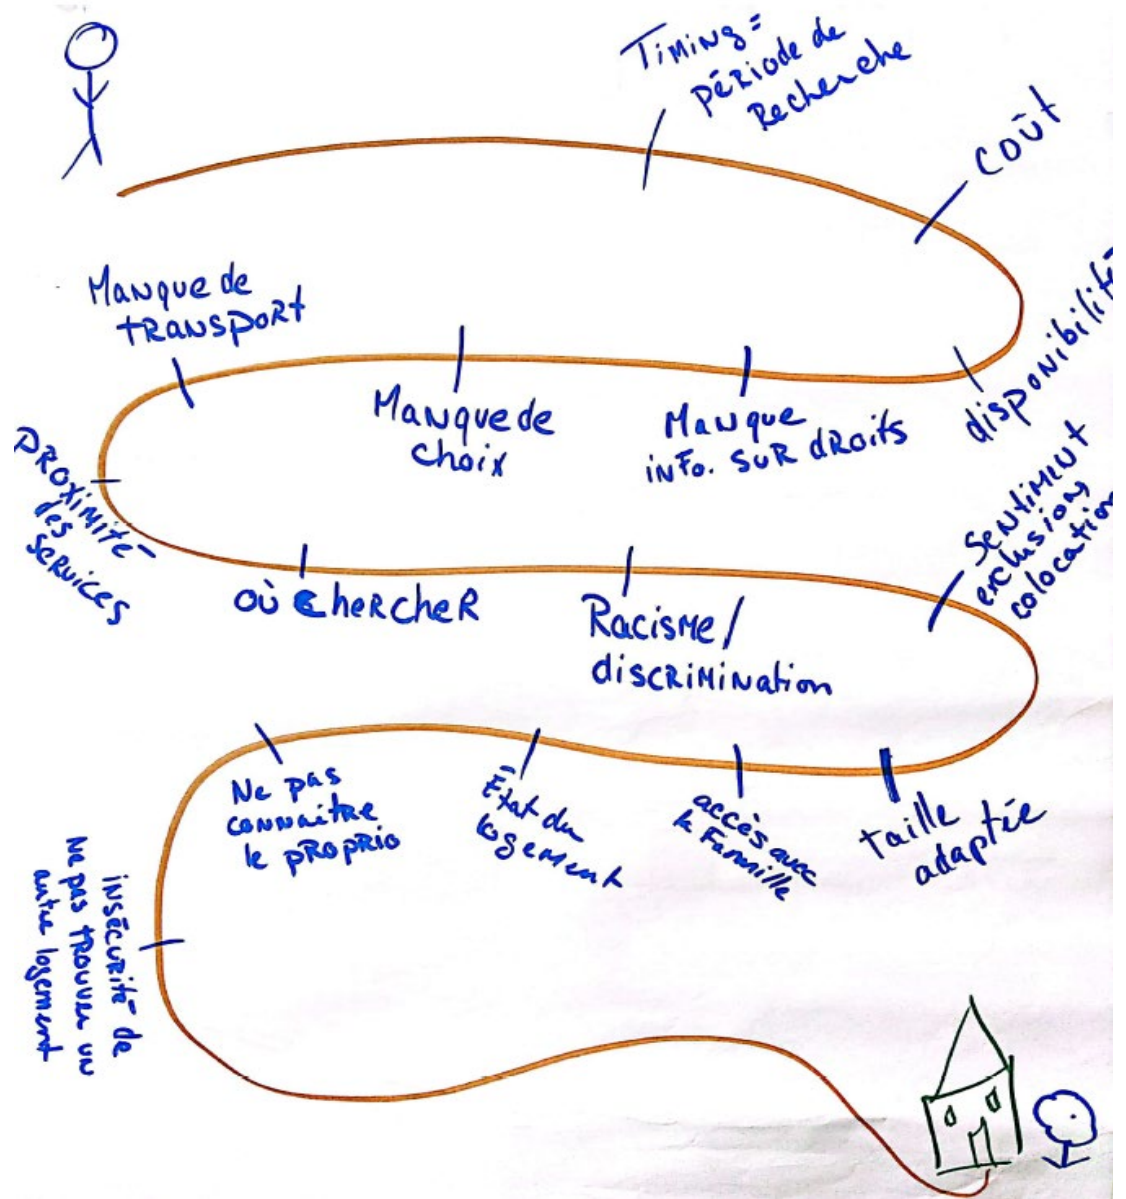 Timing =
période de
Recherche
coût
disponibilité
Manque
info. sur droits
Manque de
choix
Manque de
transport
proximité
des
services
où chercher
Racisme /
discrimination
Sentiment
exclusion,
colocation
taille
adaptée
accès avec
la Famille
État du
logement
Ne pas
connaitre
le proprio
insécurité de
Ne pas trouver un
autre logement